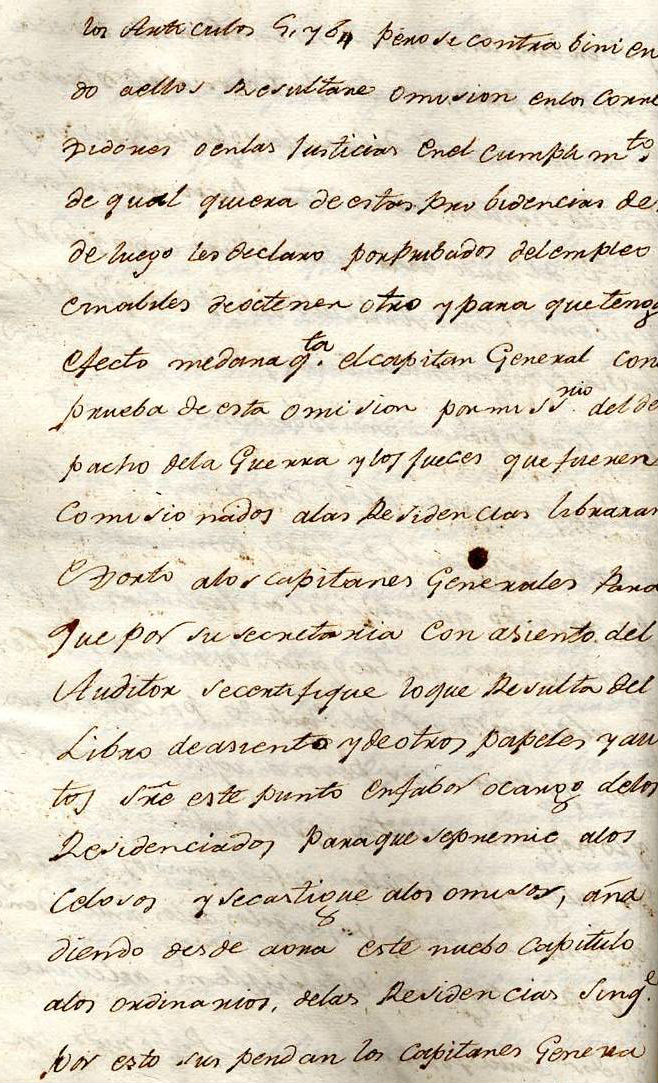 los Articulos 5, y 6,, pero se contra binien
do aellos Resultare omision enlos Corre
xidores o enlas Justicias enel cumplim.to
de qual quiera de estas probidencias des
de luego les declaro por pribados del empleo
einabiles de octener otro y para que tenga
efecto medara q.ta el capitan General con
prueba de esta omision por mi ss.rio del des
pacho dela Guerra y los jueces que fueren
Comisio nados alas Residencias libraran
exorto alos capitanes Generales para
que por su secretaria con asiento del
Auditor secertifique loque Resulta del
Libro deasiento y deotros papeles y au
tos sre este punto enfabor ocargo delos
Residenciados paraque sepremie alos
Celosos y secastigue alos omisos, aña
diendo desde aora este nuebo capitulo
alos ordinarios, delas Residencias sinq.e
por esto sus pendan los capitanes Genera